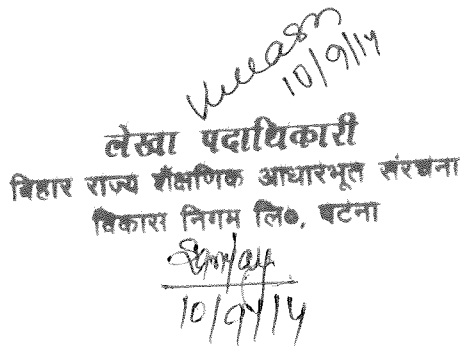 10/9/14
लेखा पदाधिकारी
बिहार राज्य शैक्षणिक आधारभूत संरचना
विकास निगम लि०, पटना
10/9/14